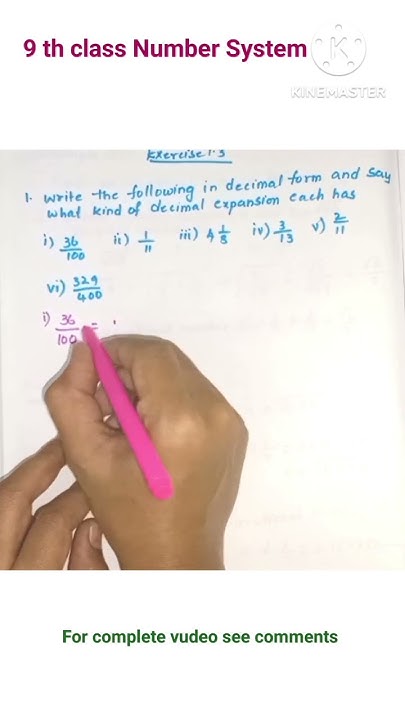 9 th class Number System
KINEMASTER
Exercise 1.3
1. Write the following in decimal form and say
what kind of decimal expansion each has
i) 36/100 ii) 1/11 iii) 4 1/8 iv) 3/13 v) 2/11
vi) 329/400
i) 36/100 =
For complete vudeo see comments